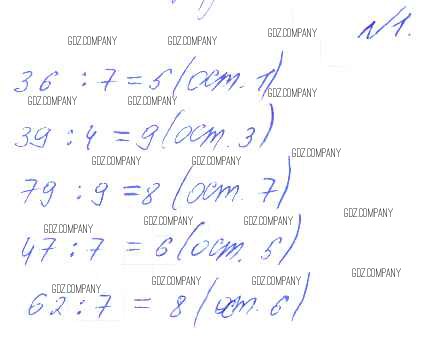 №1.
GDZ.COMPANY GDZ.COMPANY GDZ.COMPANY
36 : 7 = 5 (ост. 1)
GDZ.COMPANY GDZ.COMPANY GDZ.COMPANY
39 : 4 = 9 (ост. 3)
GDZ.COMPANY GDZ.COMPANY GDZ.COMPANY
79 : 9 = 8 (ост. 7)
GDZ.COMPANY GDZ.COMPANY GDZ.COMPANY GDZ.COMPANY
47 : 7 = 6 (ост. 5)
GDZ.COMPANY GDZ.COMPANY GDZ.COMPANY GDZ.COMPANY
62 : 7 = 8 (ост. 6)